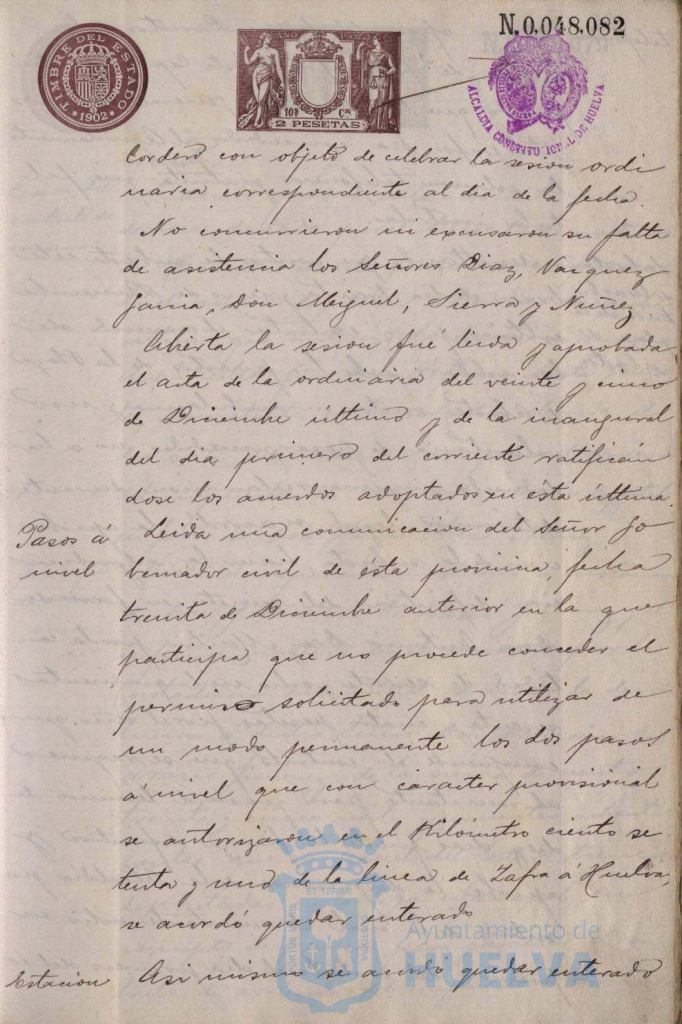 N.0,048,082
TIMBRE DEL ESTADO
1902
AÑO 1902
10ª Cª
2 PESETAS
ALCALDIA CONSTITUCIONAL DE HUELVA
Cordero con objeto de celebrar la sesion ordi
naria correspondiente al dia de la fecha.
No concurrieron ni excusaron su falta
de asistencia los Señores Diaz, Vazquez
Garcia, Don Miguel, Sierra y Nuñez
Abierta la sesion fué leida y aprobada
el acta de la ordinaria del veinte y cinco
de Diciembre último y de la inaugural
del dia primero del corriente ratificán
dose los acuerdos adoptados en ésta última.
Pasos á
nivel
Leida una comunicacion del Señor Go
bernador civil de ésta provincia, fecha
treinta de Diciembre anterior en la que
participa que no procede conceder el
permiso solicitado para utilizar de
un modo permanente los dos pasos
á nivel que con caracter provisional
se autorizaron en el Kilómetro ciento se
tenta y uno de la linea de Zafra á Huelva,
se acordó quedar enterado
Estacion
Asi mismo se acordó quedar enterado
Ayuntamiento de
HUELVA